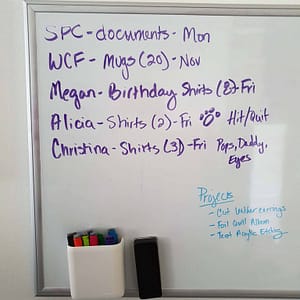 SPC - documents - Mon
WCF - Mugs (20) - Nov
Megan - Birthday Shirts (8) - Fri
Alicia - Shirts (2) - Fri Hit/Quit
Christina - Shirts (3) - Fri Pops, Daddy,
Eyes
Projects
- Cut leather earrings
- Foil Quill Album
- Test Acrylic Etching